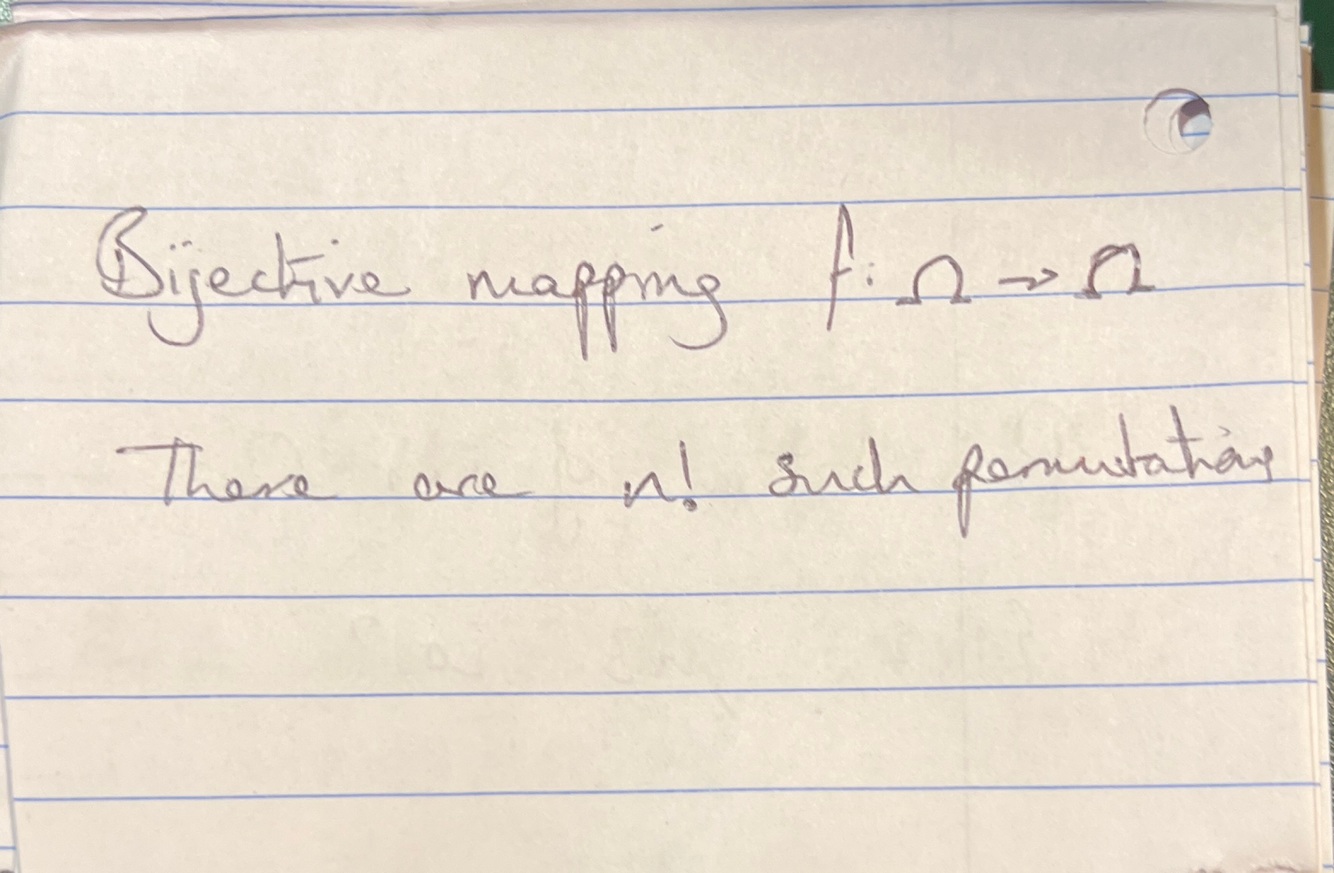 Bijective mapping f: Ω → Ω
There are n! such permutations